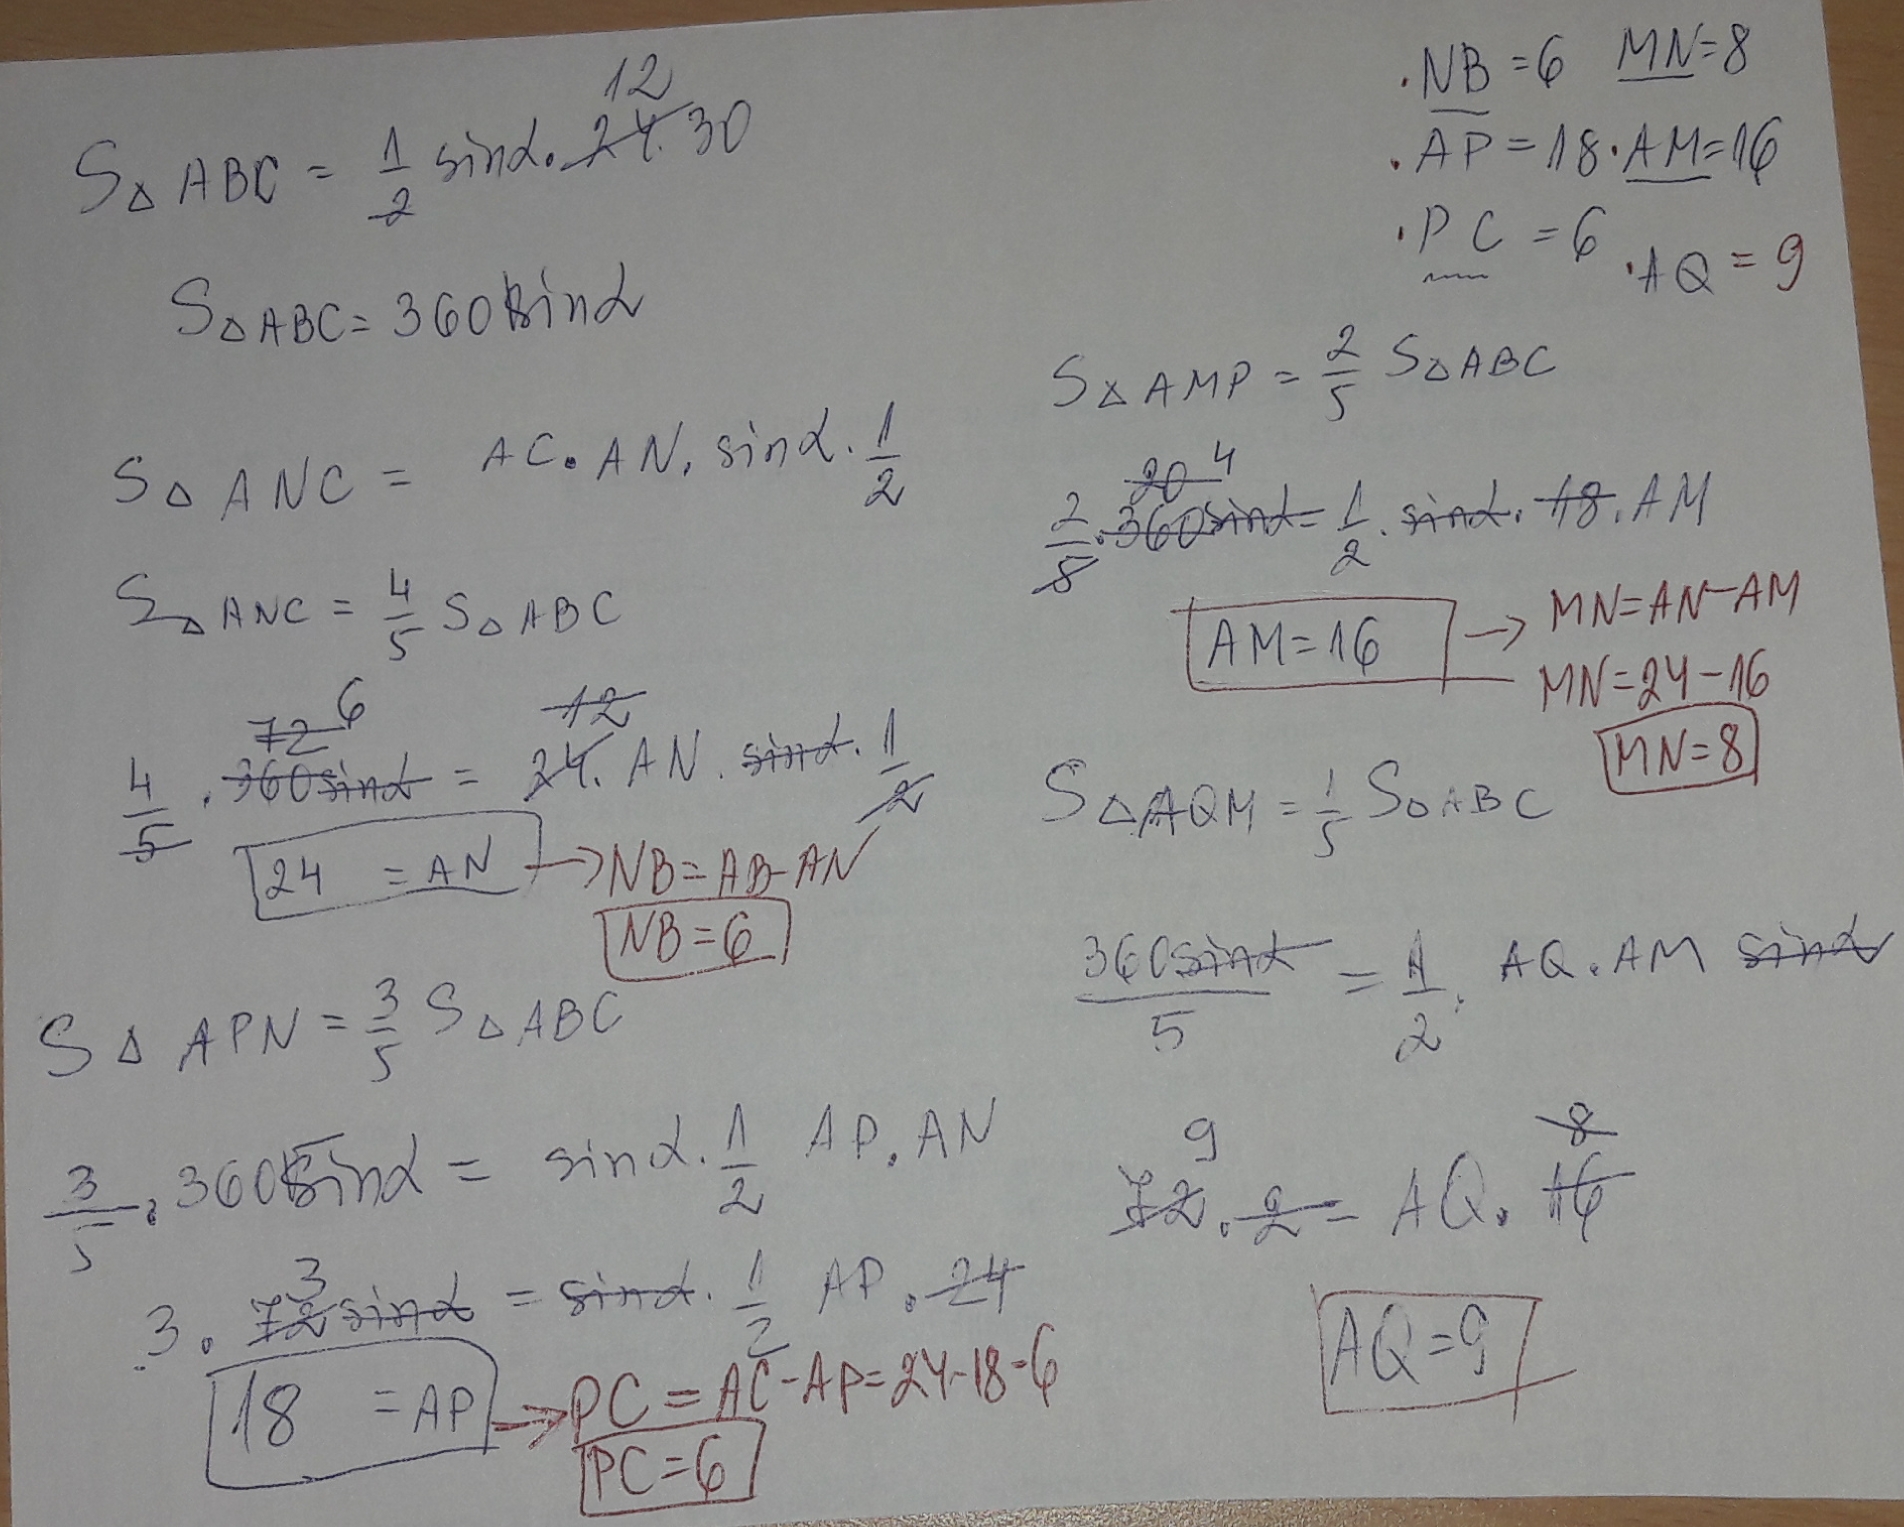 12
S△ABC = 1/2 sinα. 24. 30
S△ABC = 360sinα
S△ANC = AC. AN. sinα. 1/2
S△ANC = 4/5 S△ABC
72 6 12
4/5 . 360sinα = 24. AN. sinα. 1/2
24 = AN → NB=AB-AN
NB=6
S△APN = 3/5 S△ABC
3/5 . 360sinα = sinα. 1/2 AP. AN
3
3. 72sinα = sinα. 1/2 AP. 24
18 = AP → PC = AC-AP=24-18-6
PC=6
.NB=6 MN=8
.AP=18 .AM=16
.PC=6 .AQ=9
S△AMP = 2/5 S△ABC
20 4
2/5 . 360sinα = 1/2 . sinα. 18. AM
AM=16 → MN=AN-AM
MN=24-16
MN=8
S△AQM = 1/5 S△ABC
360sinα/5 = 1/2 . AQ. AM sinα
9 8
72. 2 = AQ. 16
AQ=9